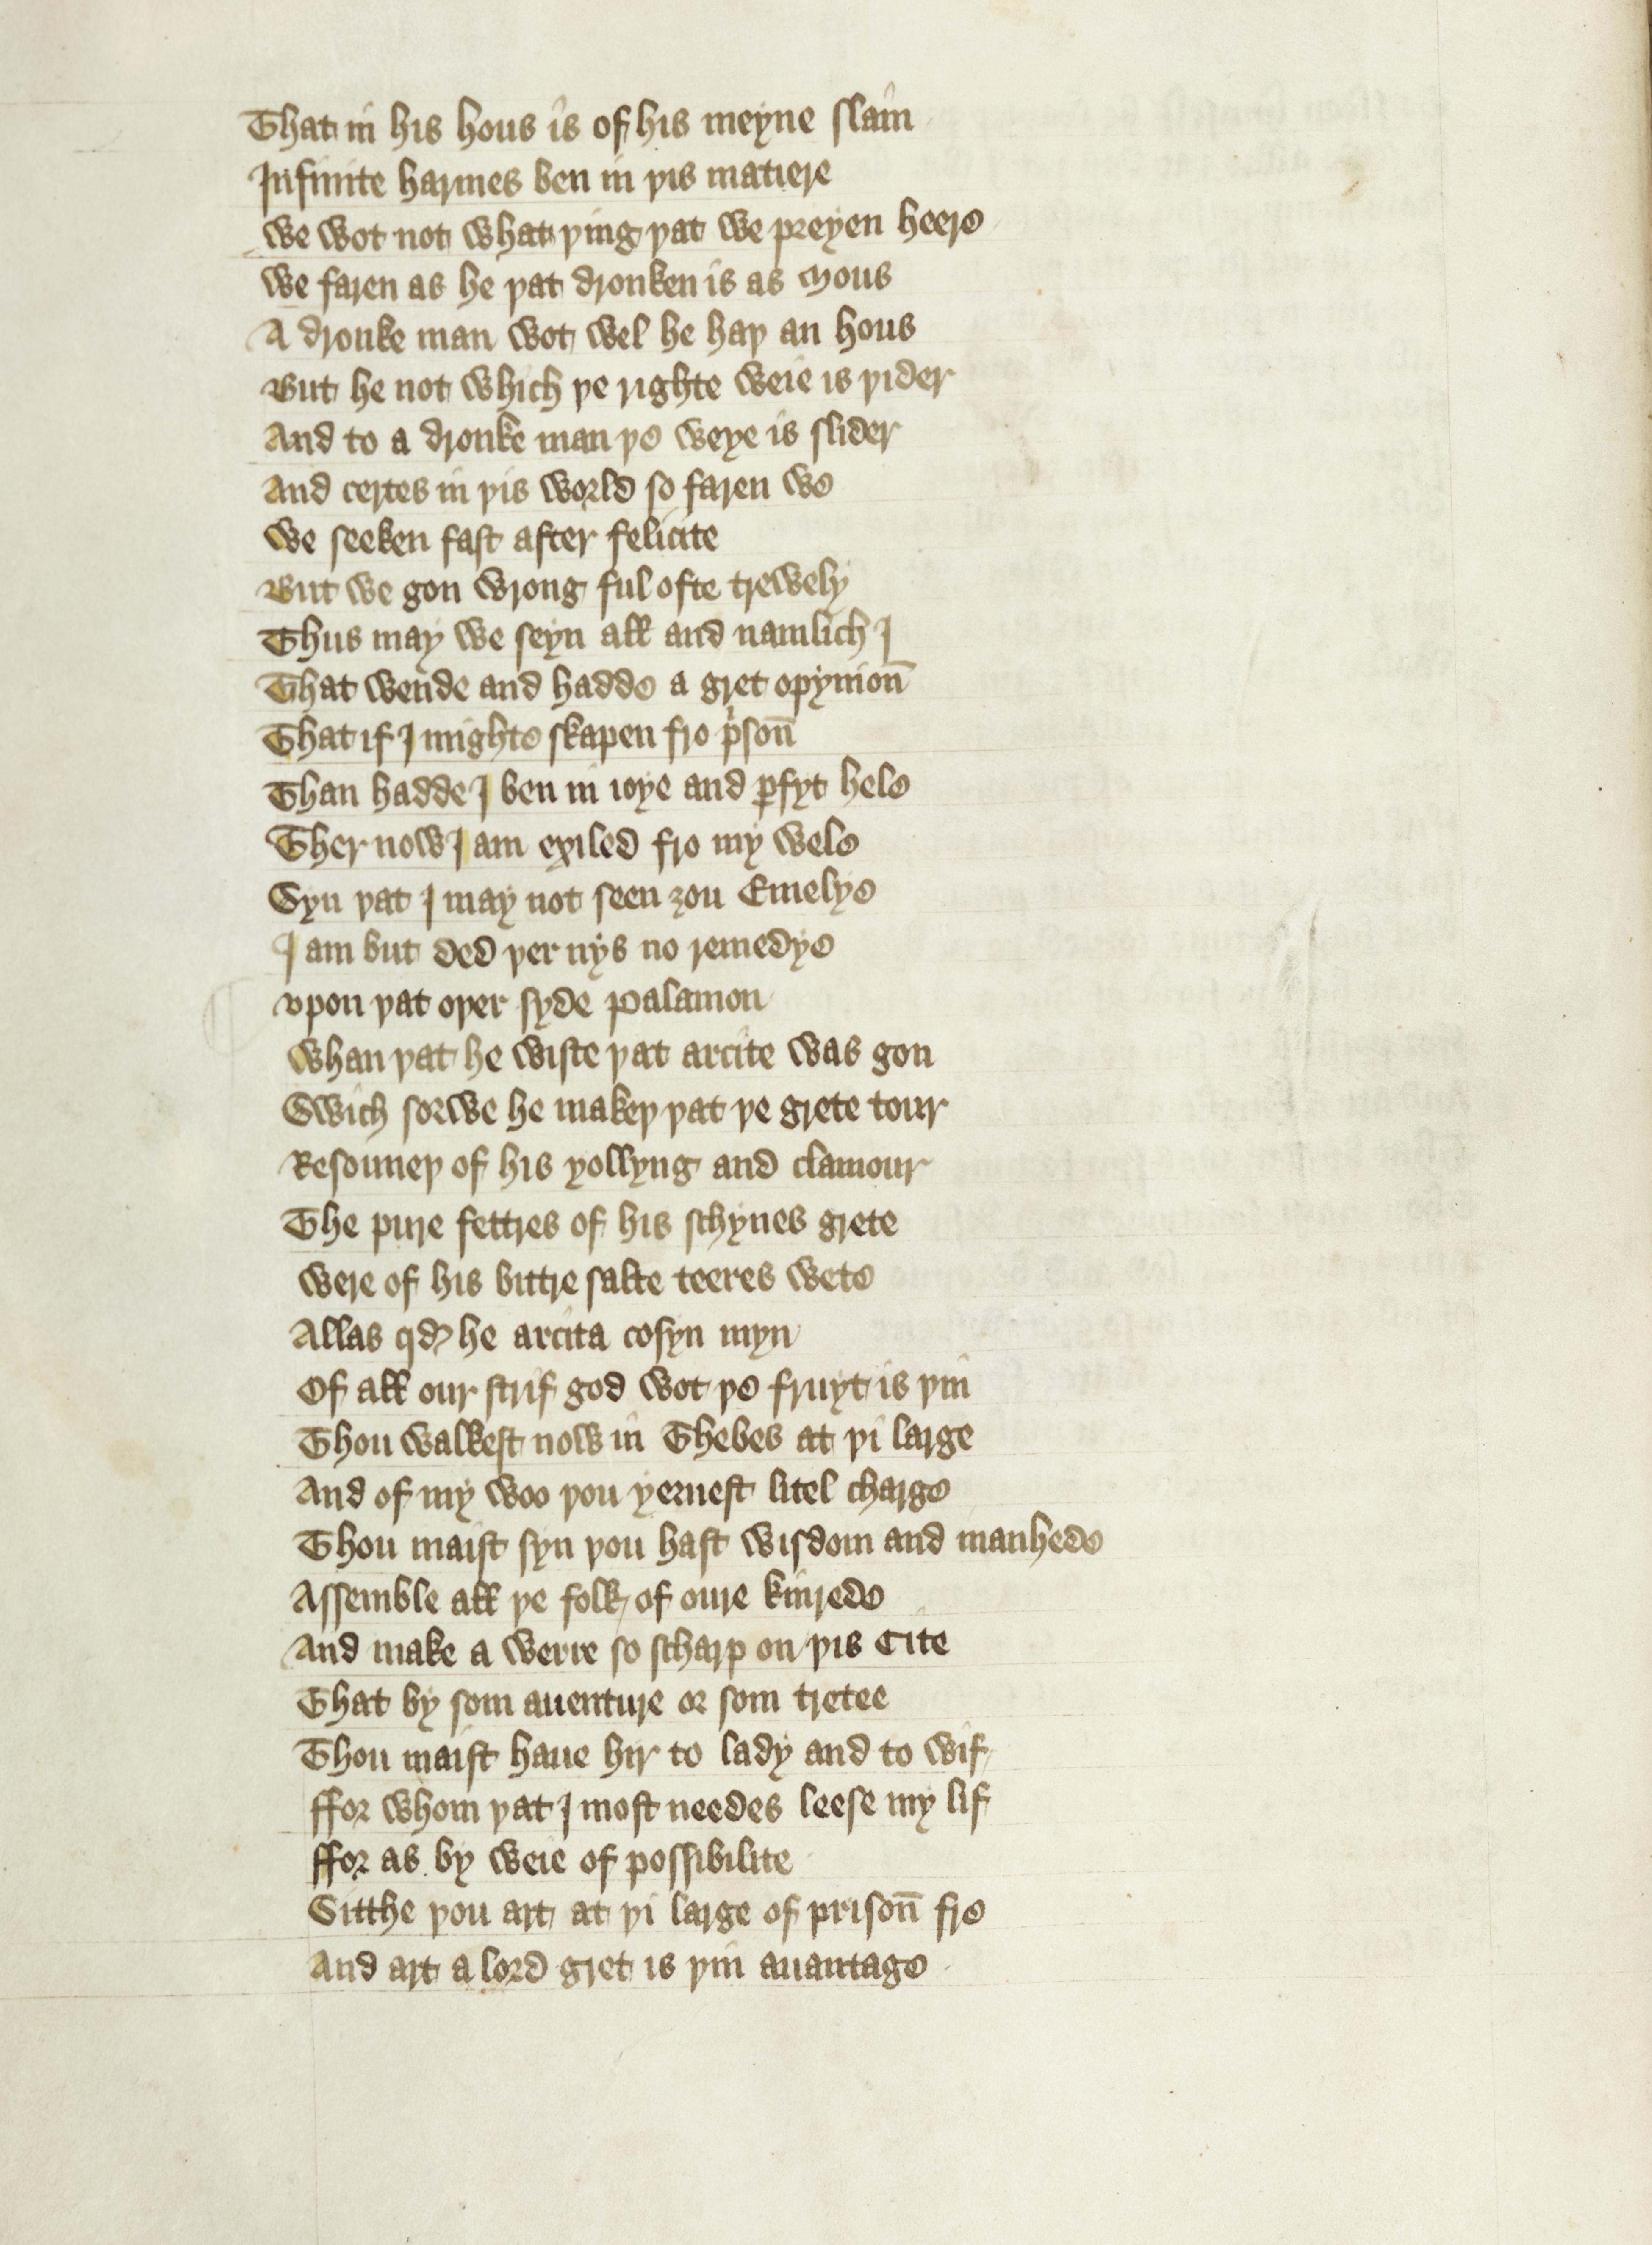 That in his hous is of his meyne slain
Infinite harmes ben in þis matiere
we wot not what þing þat we preyen heere
we faren as he þat dronken is as Mous
A dronke man wot wel he haþ an hous
But he not which þe righte weie is þider
And to a dronke man þe weye is slider
And certes in þis world so faren we
we seeken fast after felicite
But we gon wrong ful ofte trewely
Thus may we seyn all and namlich I
That wende and hadde a gret opynion̄
That if I mighte skapen fro pⁱson̄
Than hadde I ben in ioye and ꝑfyt hele
Ther now I am exiled fro my wele
Syn þat I may not seen ȝou Emelye
I am but ded þer nys no remedye
vpon þat oþer syde Palamon
whan þat he wiste þat arcite was gon
Swich sorwe he makeþ þat þe grete tour
Resouneþ of his yollyng and clamour
The pure fettres of his schynes grete
were of his bittre salte teeres wete
Allas qd he arcita cosyn myn
Of all our strif god wot þe fruyt is þin
Thou walkest now in Thebes at þi large
And of my woo þou yeuest litel charge
Thou maist syn þou hast wisdom and manhede
Assemble all þe folk of oure kinrede
And make a werre so scharp on þis Cite
That by som auenture or som tretee
Thou maist haue hir to lady and to wif
ffor whom þat I most needes leese my lif
ffor as by weie of possibilite
Sitthe þou art at þi large of prison̄ fre
And art a lord gret is þin auantage